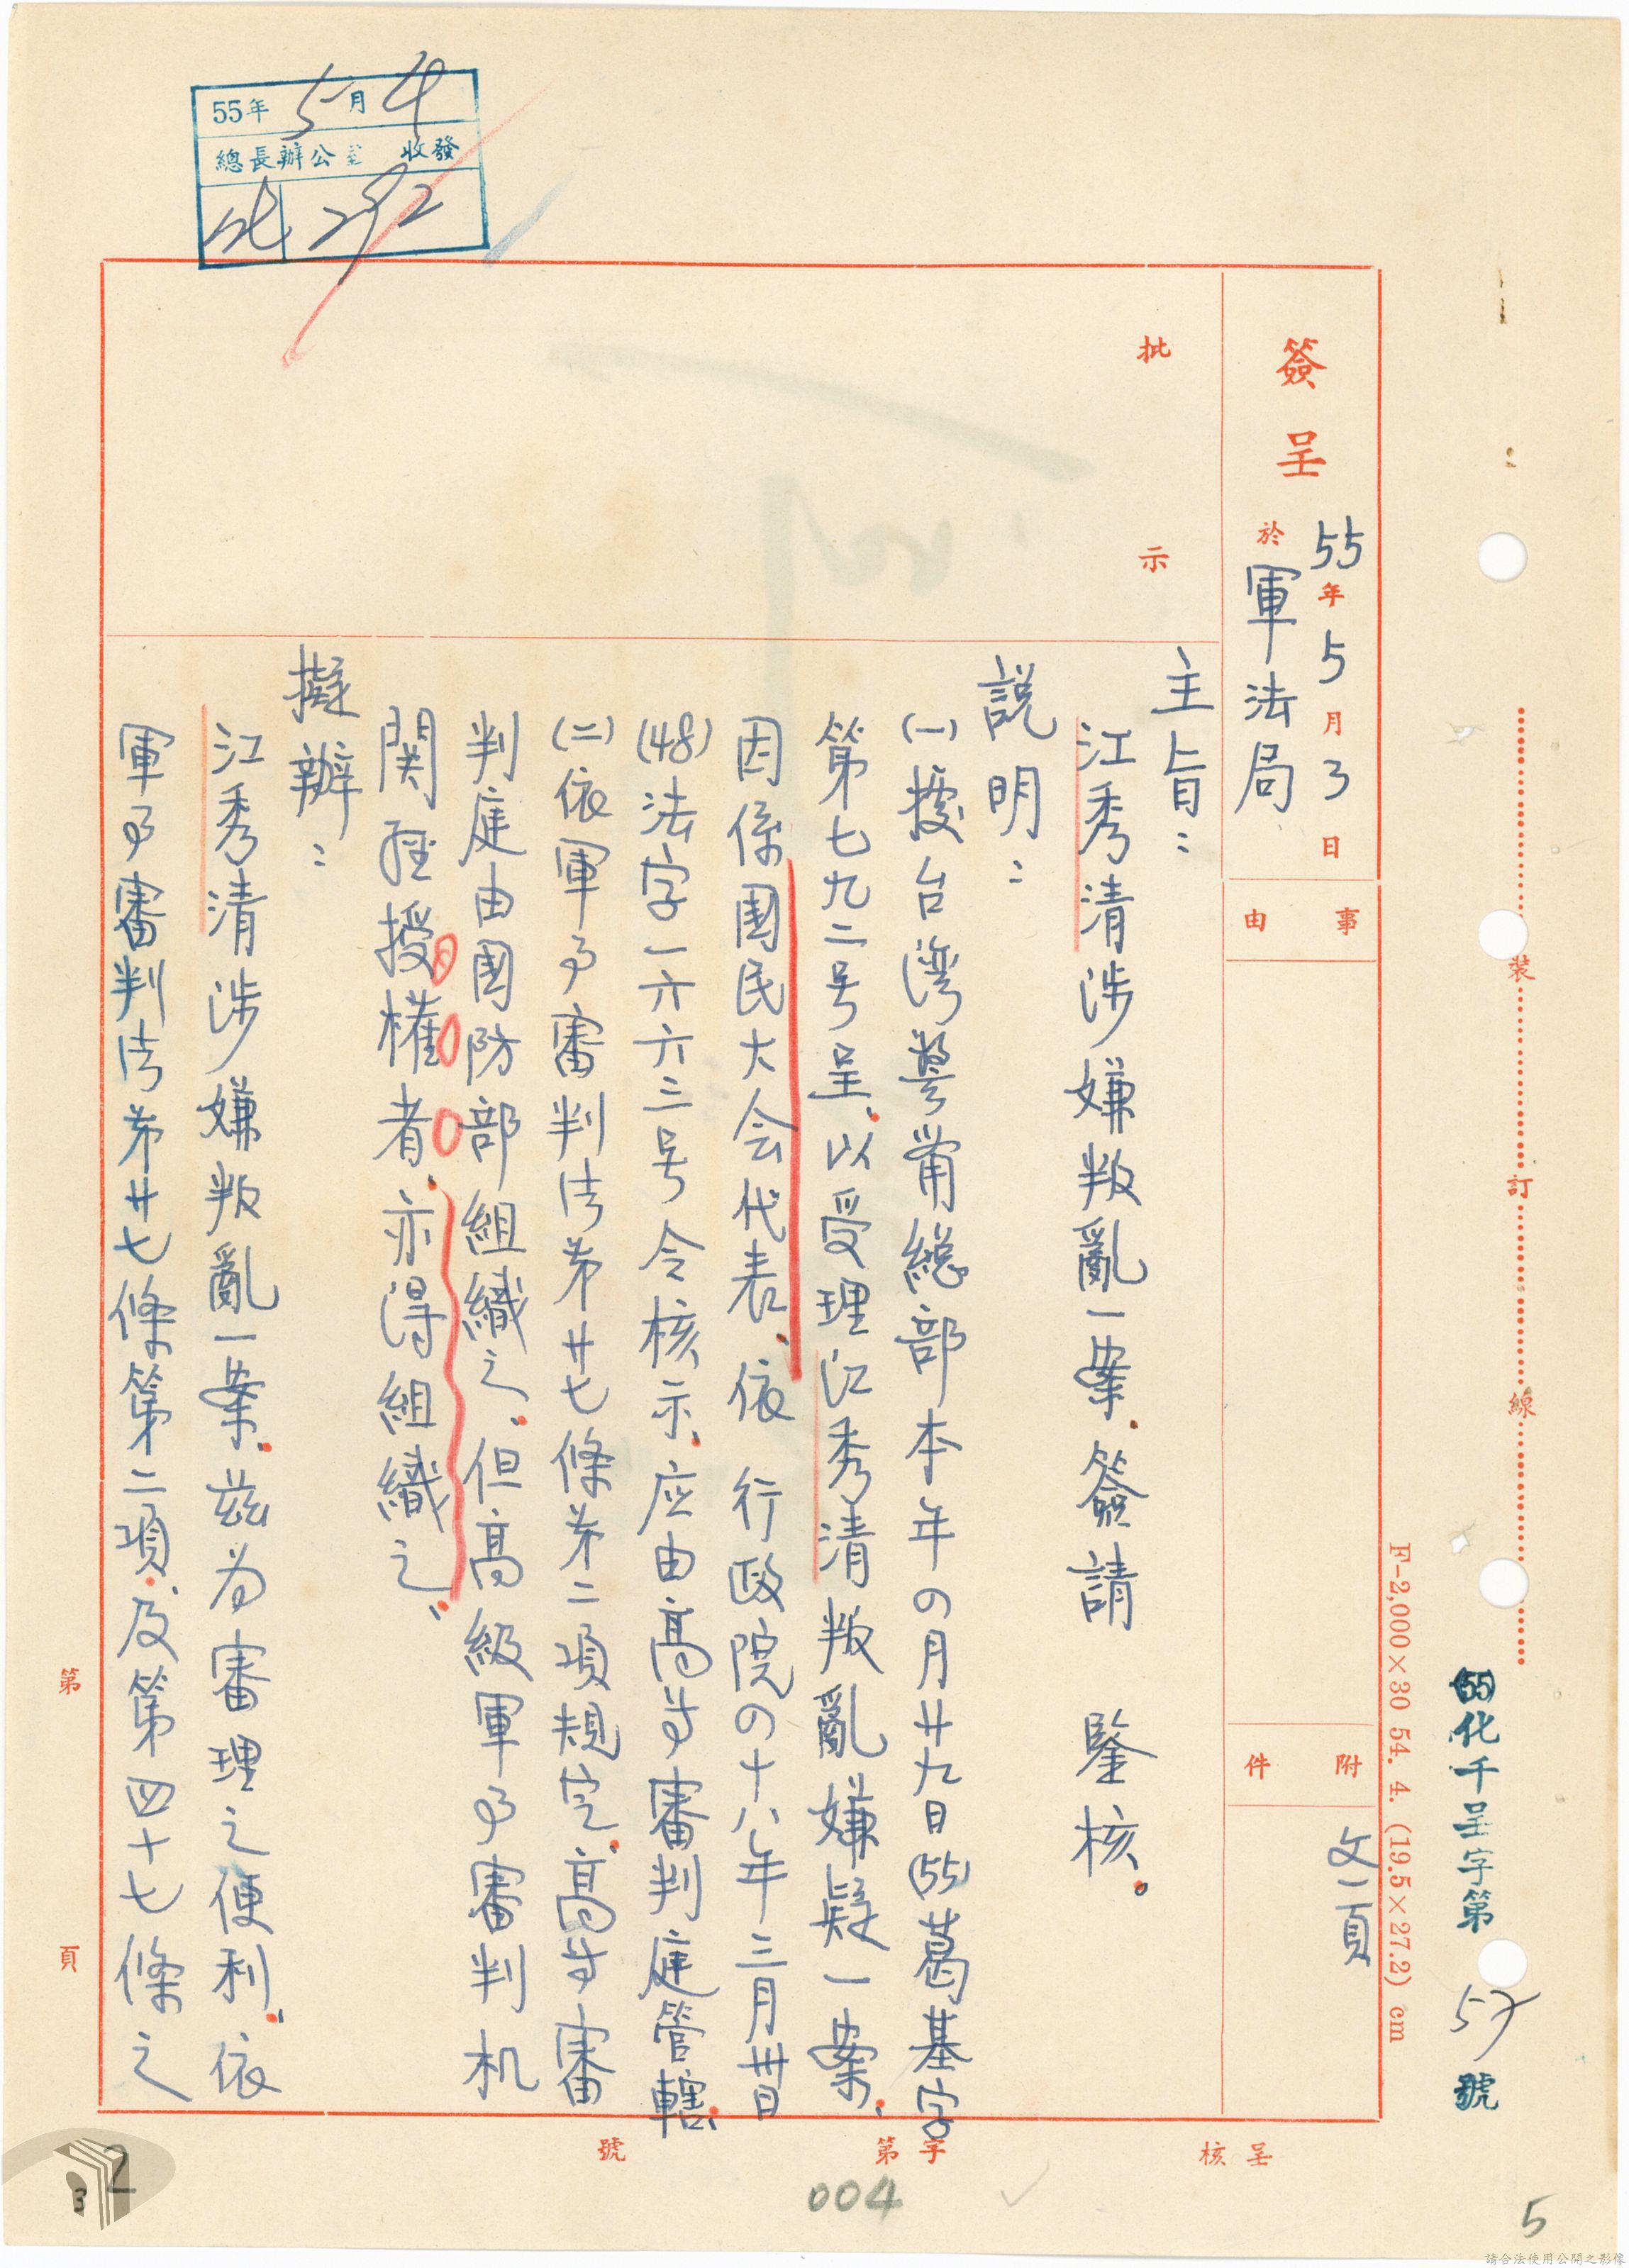 55年5月4
總長辦公室 收發
232
簽呈
55年5月3日
於軍法局
事由
附件
文一頁
批示
主旨：
江秀清涉嫌叛亂一案、簽請 鑒核。
說明：
(一)據台湾警萮總部本年の月廿九日(55)葛基字
第七九二号呈、以受理江秀清叛亂嫌疑一案、
因係國民大会代表、依 行政院の十八年三月卅日
(48)法字一六六三号令核示、应由高等審判庭管轄、
(二)依軍事審判法第廿七條第二項規定、高等審
判庭由國防部組織之、但高級軍事審判机
関經授權者、亦得組織之、
擬辦：
江秀清涉嫌叛亂一案、茲为審理之便利、依
軍事審判法第廿七條第二項、及第四十七條之
裝訂線
F-2,000×30 54. 4. (19.5×27.2) cm
(55)化千呈字第57號
第 頁
呈核
字第 號
004
2
3
5
請合法使用公開之影像